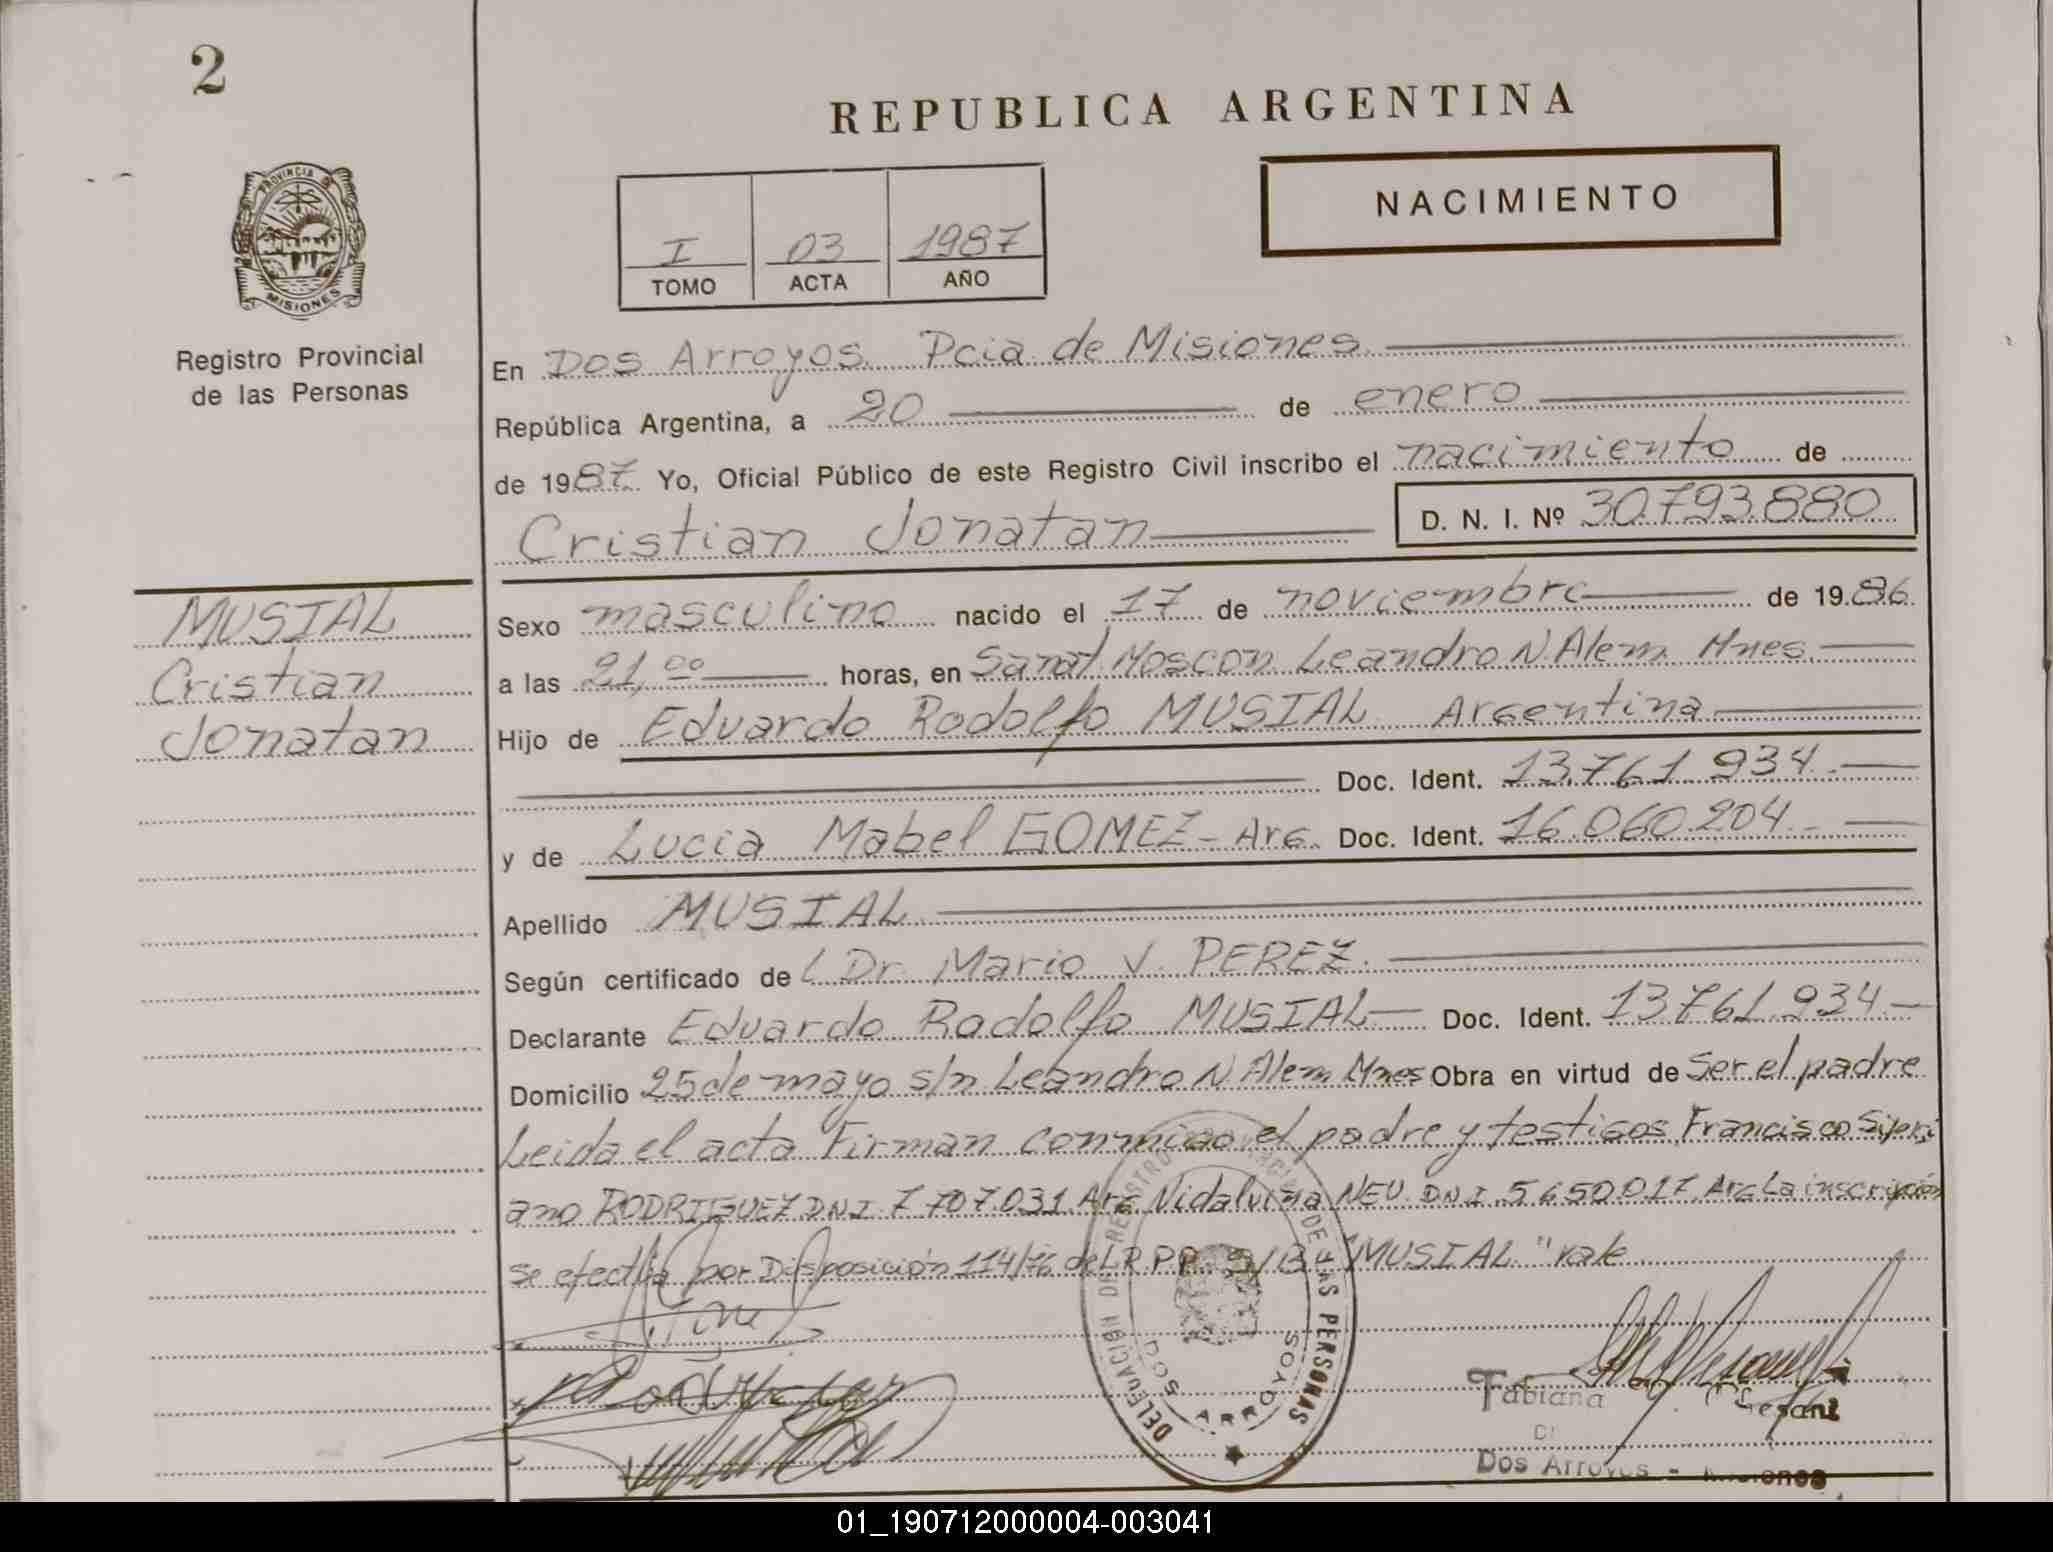 2
REPUBLICA ARGENTINA
NACIMIENTO
I 03 1987
TOMO ACTA AÑO
PROVINCIA DE
MISIONES
Registro Provincial
de las Personas
En Dos Arroyos Pcia de Misiones
República Argentina, a 20 de enero
de 1987 Yo, Oficial Público de este Registro Civil inscribo el nacimiento de
Cristian Jonatan D. N. I. Nº 30.793.880
MUSIAL
Cristian
Jonatan
Sexo masculino nacido el 17 de noviembre de 1986
a las 21,00 horas, en Sanat. Moscon Leandro N Alem Mnes.
Hijo de Eduardo Rodolfo MUSIAL Argentina
Doc. Ident. 13.761.934.
y de Lucia Mabel GOMEZ - Arg. Doc. Ident. 16.060.204.
Apellido MUSIAL
Según certificado de l Dr. Mario V. PEREZ.
Declarante Eduardo Rodolfo MUSIAL Doc. Ident. 13.761.934
Domicilio 25 de mayo s/n Leandro N Alem Mnes Obra en virtud de Ser el padre
Leida el acta Firman conmigo el padre y testigos Francisco Sipri
ano RODRIGUEZ DNI 7.707.031 Arg Nidalvina NEU DNI 5650017 Arg La inscripción
se efectúa por Disposición 114/76 del R P P. S/B "MUSIAL" vale
DELEGACION DEL REGISTRO PROVINCIAL DE LAS PERSONAS
DOS ARROYOS
Fabiana
Dos Arroyos - Misiones
01_190712000004-003041